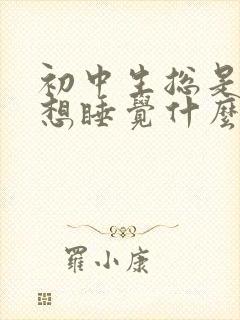 初中生总是
想睡覺什麼
羅小康